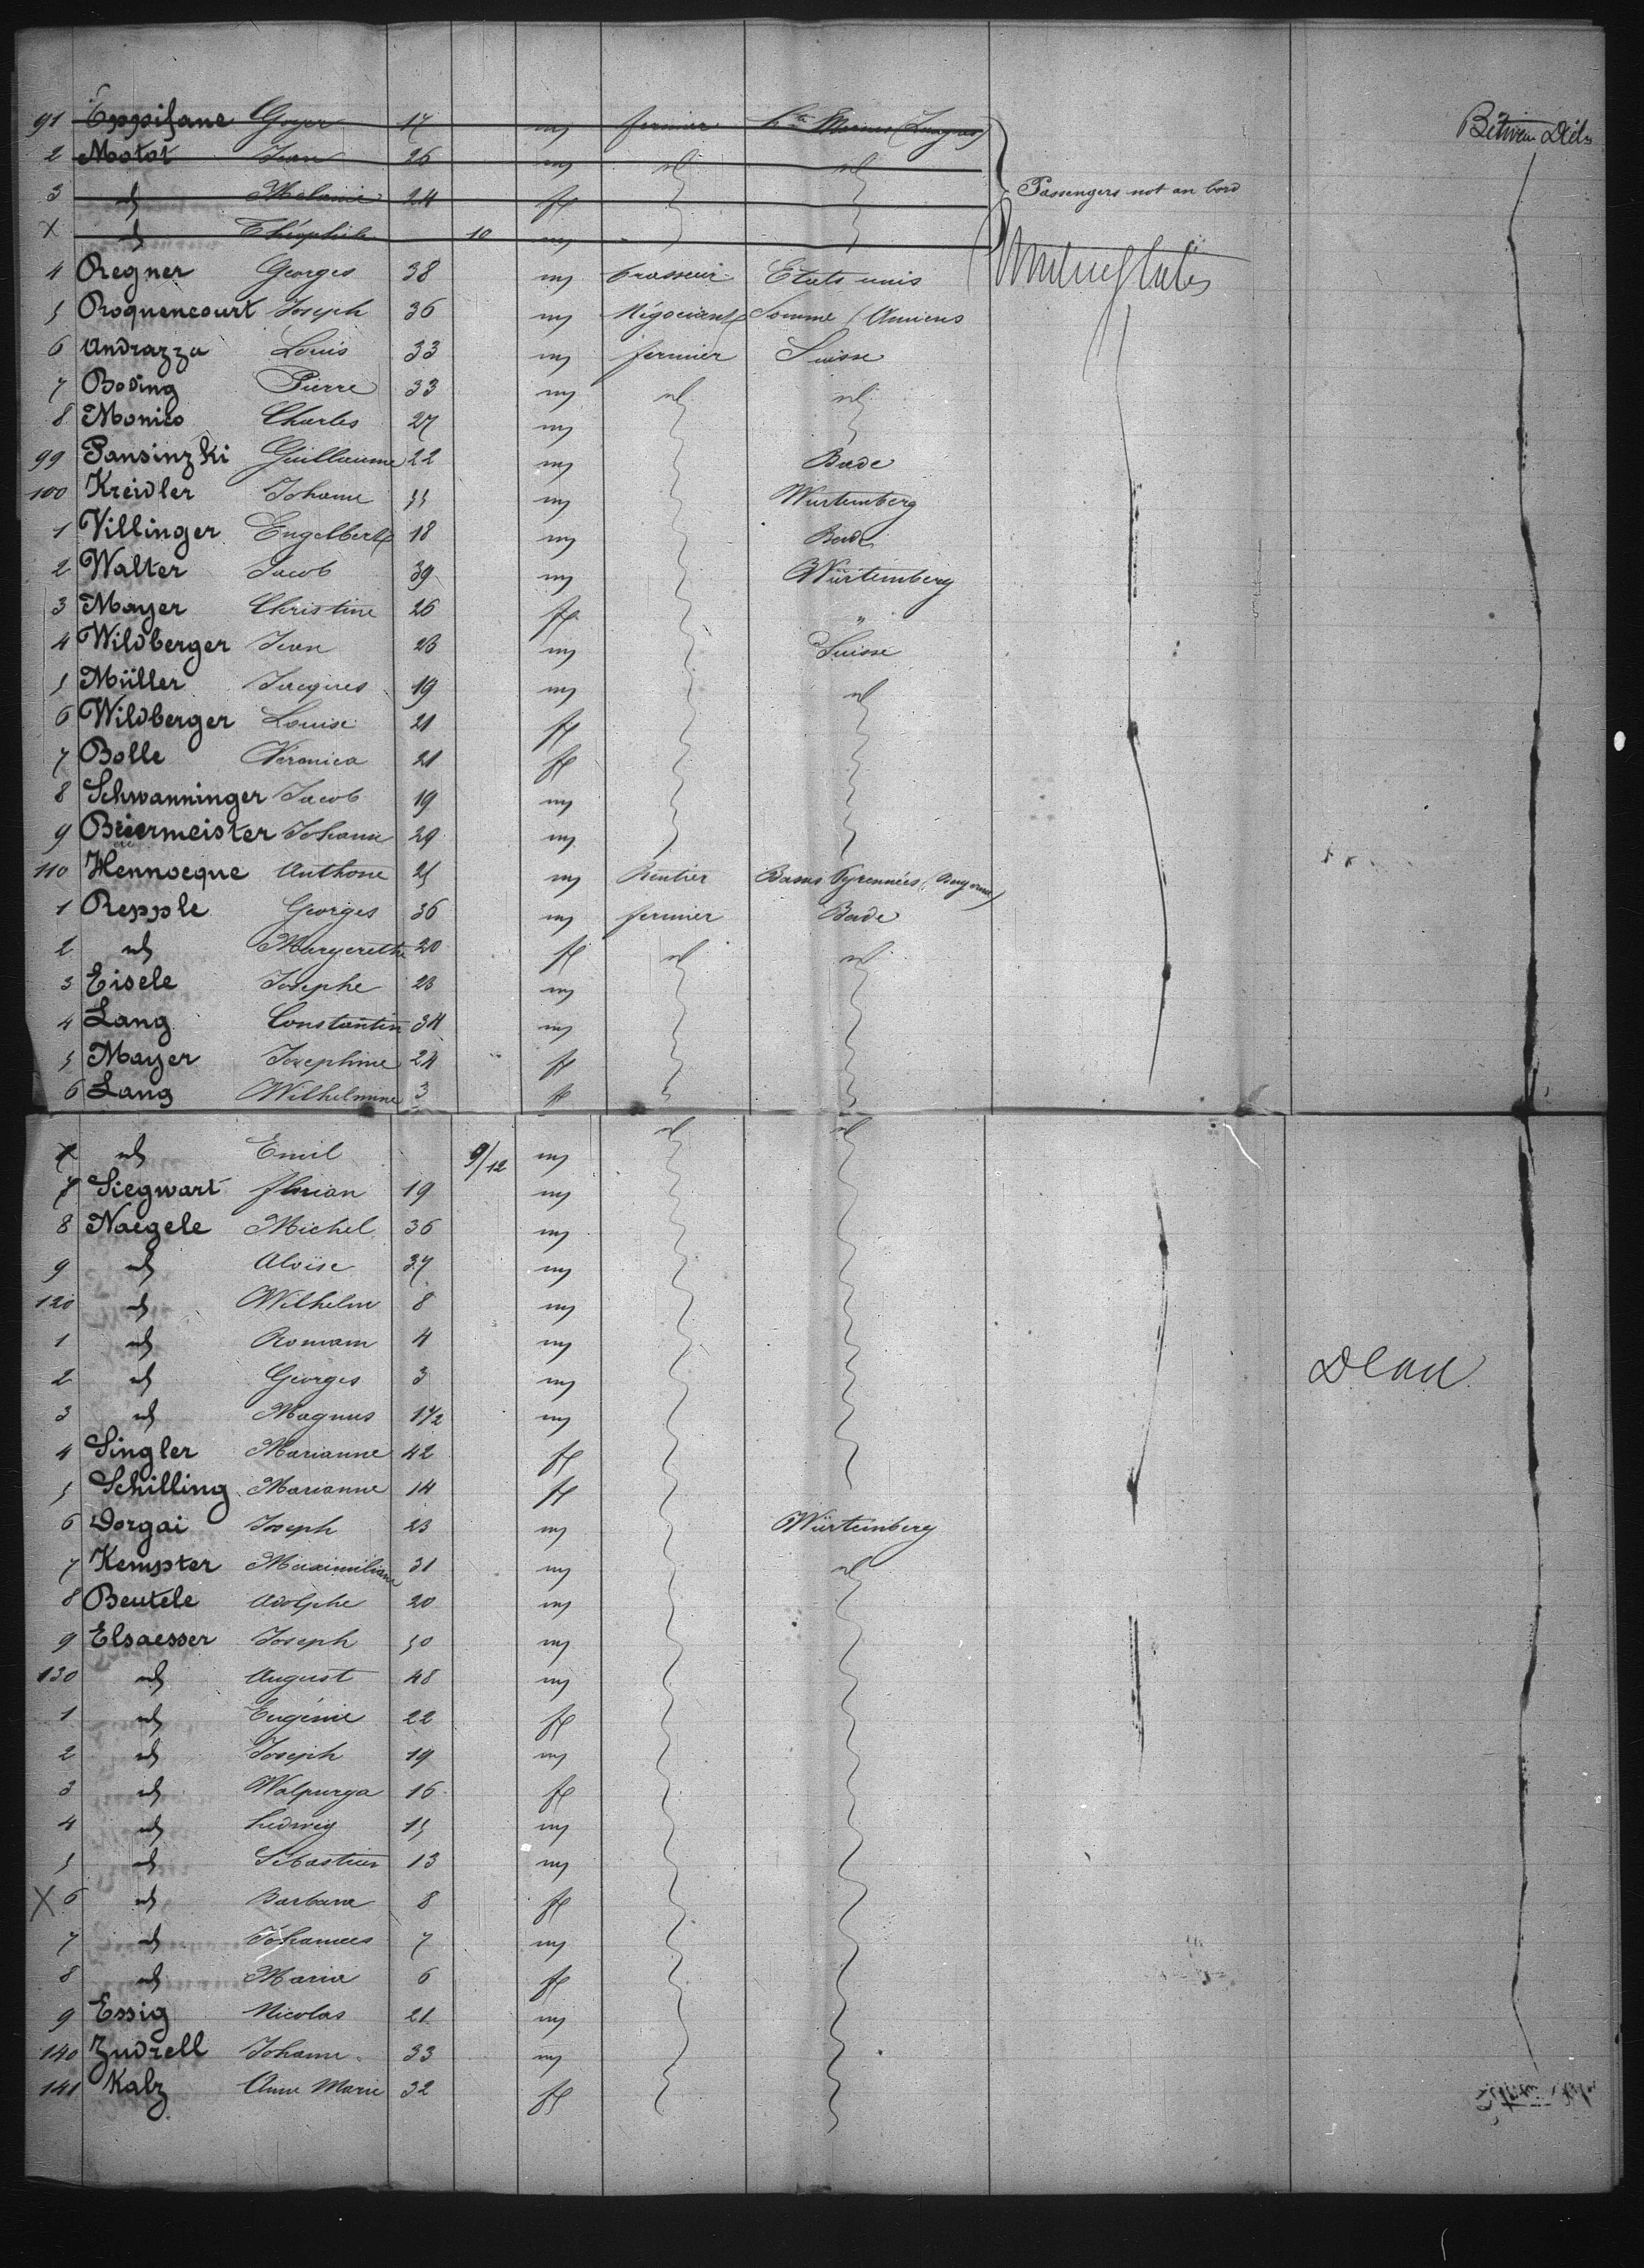 91 Eppifane Goyer 17 m fermier Hte Marne (Langres) Between Decks
2 Motot Jean 26 m id id
3 id Melanie 24 f Passengers not on bord
X id Théophile 10 m
4 Regner Georges 38 m brasseur Etats unis United States
5 Roquencourt Joseph 36 m Négociant Somme (Amiens
6 Andrazza Louis 33 m fermier Suisse
7 Boding Pierre 33 m id id
8 Monico Charles 27 m
99 Pansinzki Guillaume 22 m Bade
100 Kreidler Johann 55 m Wurtemberg
1 Villinger Engelbert 18 m Bade
2 Walter Jacob 39 m Würtemberg
3 Mayer Christine 26 f "
4 Wildberger Jean 23 m Suisse
5 Müller Jacques 19 m id
6 Wildberger Louise 21 f
7 Bolle Veronica 21 f
8 Schwanninger Jacob 19 m
9 Biermeister Johann 29 m
110 Hennocque Anthone 25 m Rentier Basses Pyrennées (Bayonne)
1 Repple Georges 36 m fermier Bade
2 id Margerethe 20 f id id
3 Eisele Josephe 23 m
4 Lang Constantin 34 m
5 Mayer Josephine 24 f
6 Lang Wilhelmine 3 f
X id Emil 9/12 m id id
7 Siegwart florian 19 m
8 Naegele Michel 36 m
9 id Aloïse 37 m
120 id Wilhelm 8 m
1 id Romam 4 m
2 id Georges 3 m Dead
3 id Magnus 1 1/2 m
4 Singler Marianne 42 f
5 Schilling Marianne 14 f
6 Dorgai Joseph 23 m Würtemberg
7 Kempter Maximiliane 31 m id
8 Beutele Adolphe 20 m
9 Elsaesser Joseph 50 m
130 id August 48 m
1 id Eugénie 22 f
2 id Joseph 19 m
3 id Walpurga 16 f
4 id Ludwig 15 m
5 id Sebastien 13 m
X 6 id Barbara 8 f
7 id Johannes 7 m
8 id Maria 6 f
9 Essig Nicolas 21 m
140 Zudrell Johann 33 m
141 Kalz Anne Marie 32 f